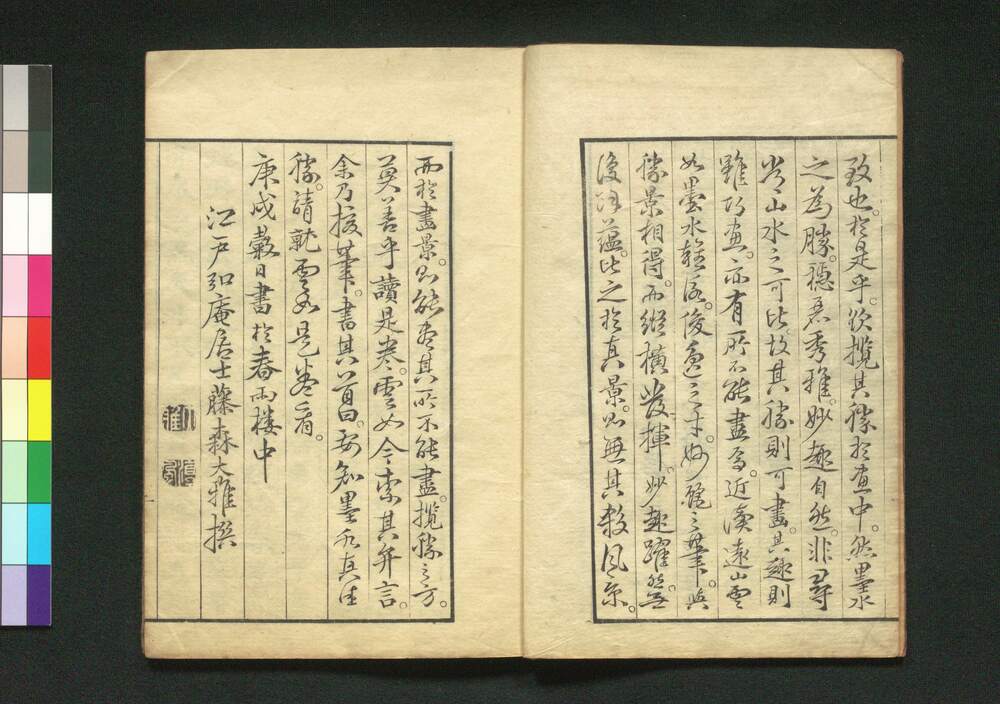 致也。於是乎。欲攬其勝於画中。然墨水
之為勝。穏君秀雅。妙趣自然。非尋
常山水之可比。故其勝則可畫。其趣則
雖巧画。亦有所不能畫焉。近濱遠山雲
如墨水雖。俊逸之才。妙麗之筆。與
勝景相得。而縱横發揮。妙趣躍然。無
復餘蘊。比之於真景。只無其殺風景。
而於畫景。則能盡其所不能盡。攬勝之方。
莫善乎讀是卷。雲如今索其弁言。
余乃援筆。書其首曰。要知墨水真佳
勝。請就雲如是卷看。
庚戌穀日書於春雨楼中
江戸弘庵居士藤森大雅撰